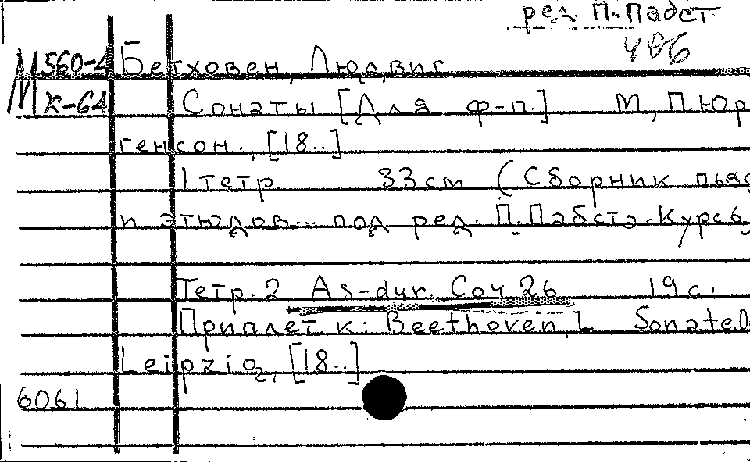 ред П. Пабст
486
М 560-2 Бетховен, Людвиг
К-64 Сонаты [Для ф-п.] М, П Юр
генсон., [18..]
1 тетр 33 см (Сборник пьес
и этюдов... под ред. П. Пабста. Курсъ
Тетр. 2 As-dur. Соч 26 19 с.
Приплет к: Beethoven, L Sonate
Leipzig, [18..]
6061